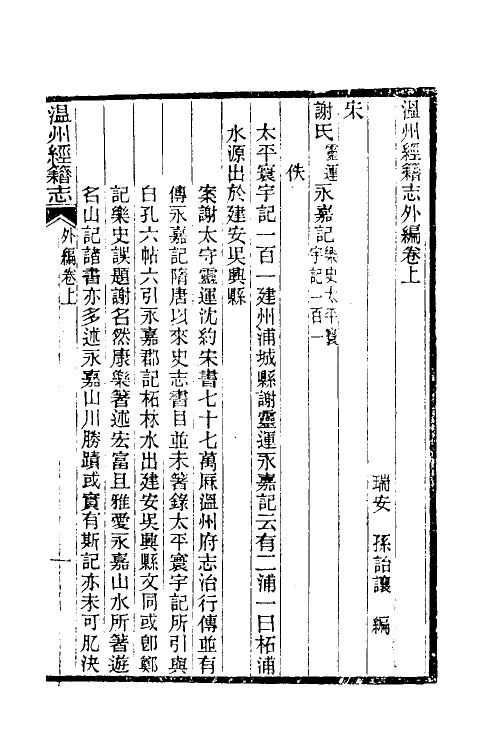 溫州經籍志外編卷上
瑞安　孫詒讓　編
宋
謝氏靈運永嘉記樂史太平寰宇記一百一
佚
太平寰宇記一百一建州浦城縣謝靈運永嘉記云有二浦一曰柘浦
水源出於建安吳興縣
案謝太守靈運沈約宋書七十七萬厤溫州府志治行傳並有
傳永嘉記隋唐以來史志書目並未著錄太平寰宇記所引與
白孔六帖六引永嘉郡記柘林水出建安吳興縣文同或卽鄭
記樂史誤題謝名然康樂著述宏富且雅愛永嘉山水所著遊
名山記諸書亦多述永嘉山川勝蹟或實有斯記亦未可肊決
溫州經籍志
外編卷上
一